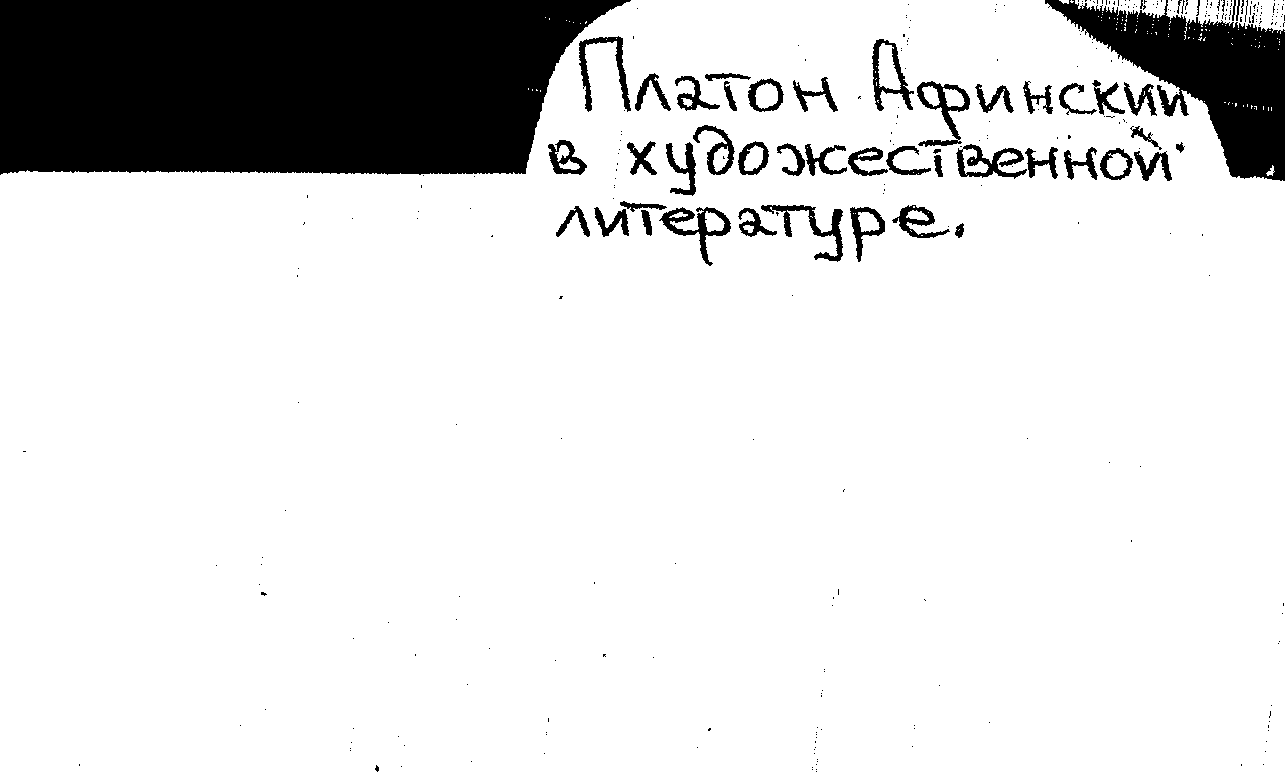 Платон Афинский
в художественной
литературе.